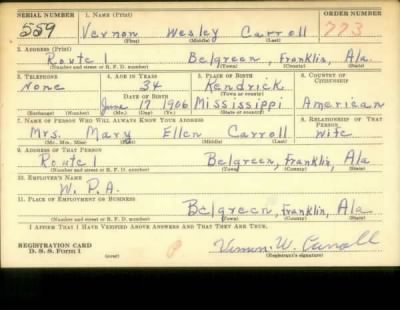 SERIAL NUMBER 1. NAME (Print) ORDER NUMBER
559 Vernon Wesley Carroll 773
(First) (Middle) (Last)
2. ADDRESS (Print)
Route 1 Belgreen, Franklin, Ala.
(Number and street or R. F. D. number) (Town) (County) (State)
3. TELEPHONE 4. AGE IN YEARS 5. PLACE OF BIRTH 6. COUNTRY OF CITIZENSHIP
None 34 Kendrick
DATE OF BIRTH (Town or county)
June 17 1906 Mississippi American
(Exchange) (Number) (Mo.) (Day) (Yr.) (State or country)
7. NAME OF PERSON WHO WILL ALWAYS KNOW YOUR ADDRESS 8. RELATIONSHIP OF THAT PERSON
Mrs. Mary Ellen Carroll Wife
(Mr., Mrs., Miss) (First) (Middle) (Last)
9. ADDRESS OF THAT PERSON
Route 1 Belgreen, Franklin, Ala
(Number and street or R. F. D. number) (Town) (County) (State)
10. EMPLOYER'S NAME
W. P. A.
11. PLACE OF EMPLOYMENT OR BUSINESS
Belgreen, Franklin, Ala
(Number and street or R. F. D. number) (Town) (County) (State)
I AFFIRM THAT I HAVE VERIFIED ABOVE ANSWERS AND THAT THEY ARE TRUE.
REGISTRATION CARD
D. S. S. Form 1
Vernon W. Carroll
(Registrant's signature)